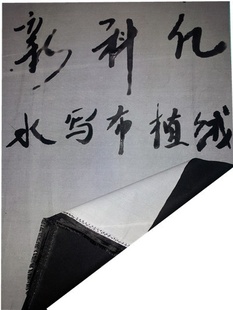 新科亿
水写布植绒